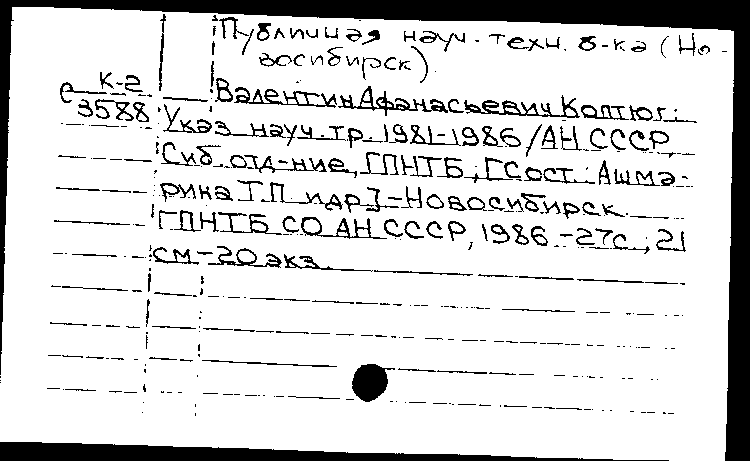 Публичная науч. техн. б-ка (Но-
восибирск).
К-2
е 3588
Валентин Афанасьевич Коптюг:
Указ. науч. тр. 1981-1986/АН СССР,
Сиб. отд-ние, ГПНТБ; [Сост.: Ашма-
рина Т.П. и др.]-Новосибирск:
ГПНТБ СО АН СССР, 1986.-27с.; 21
см-20 экз.